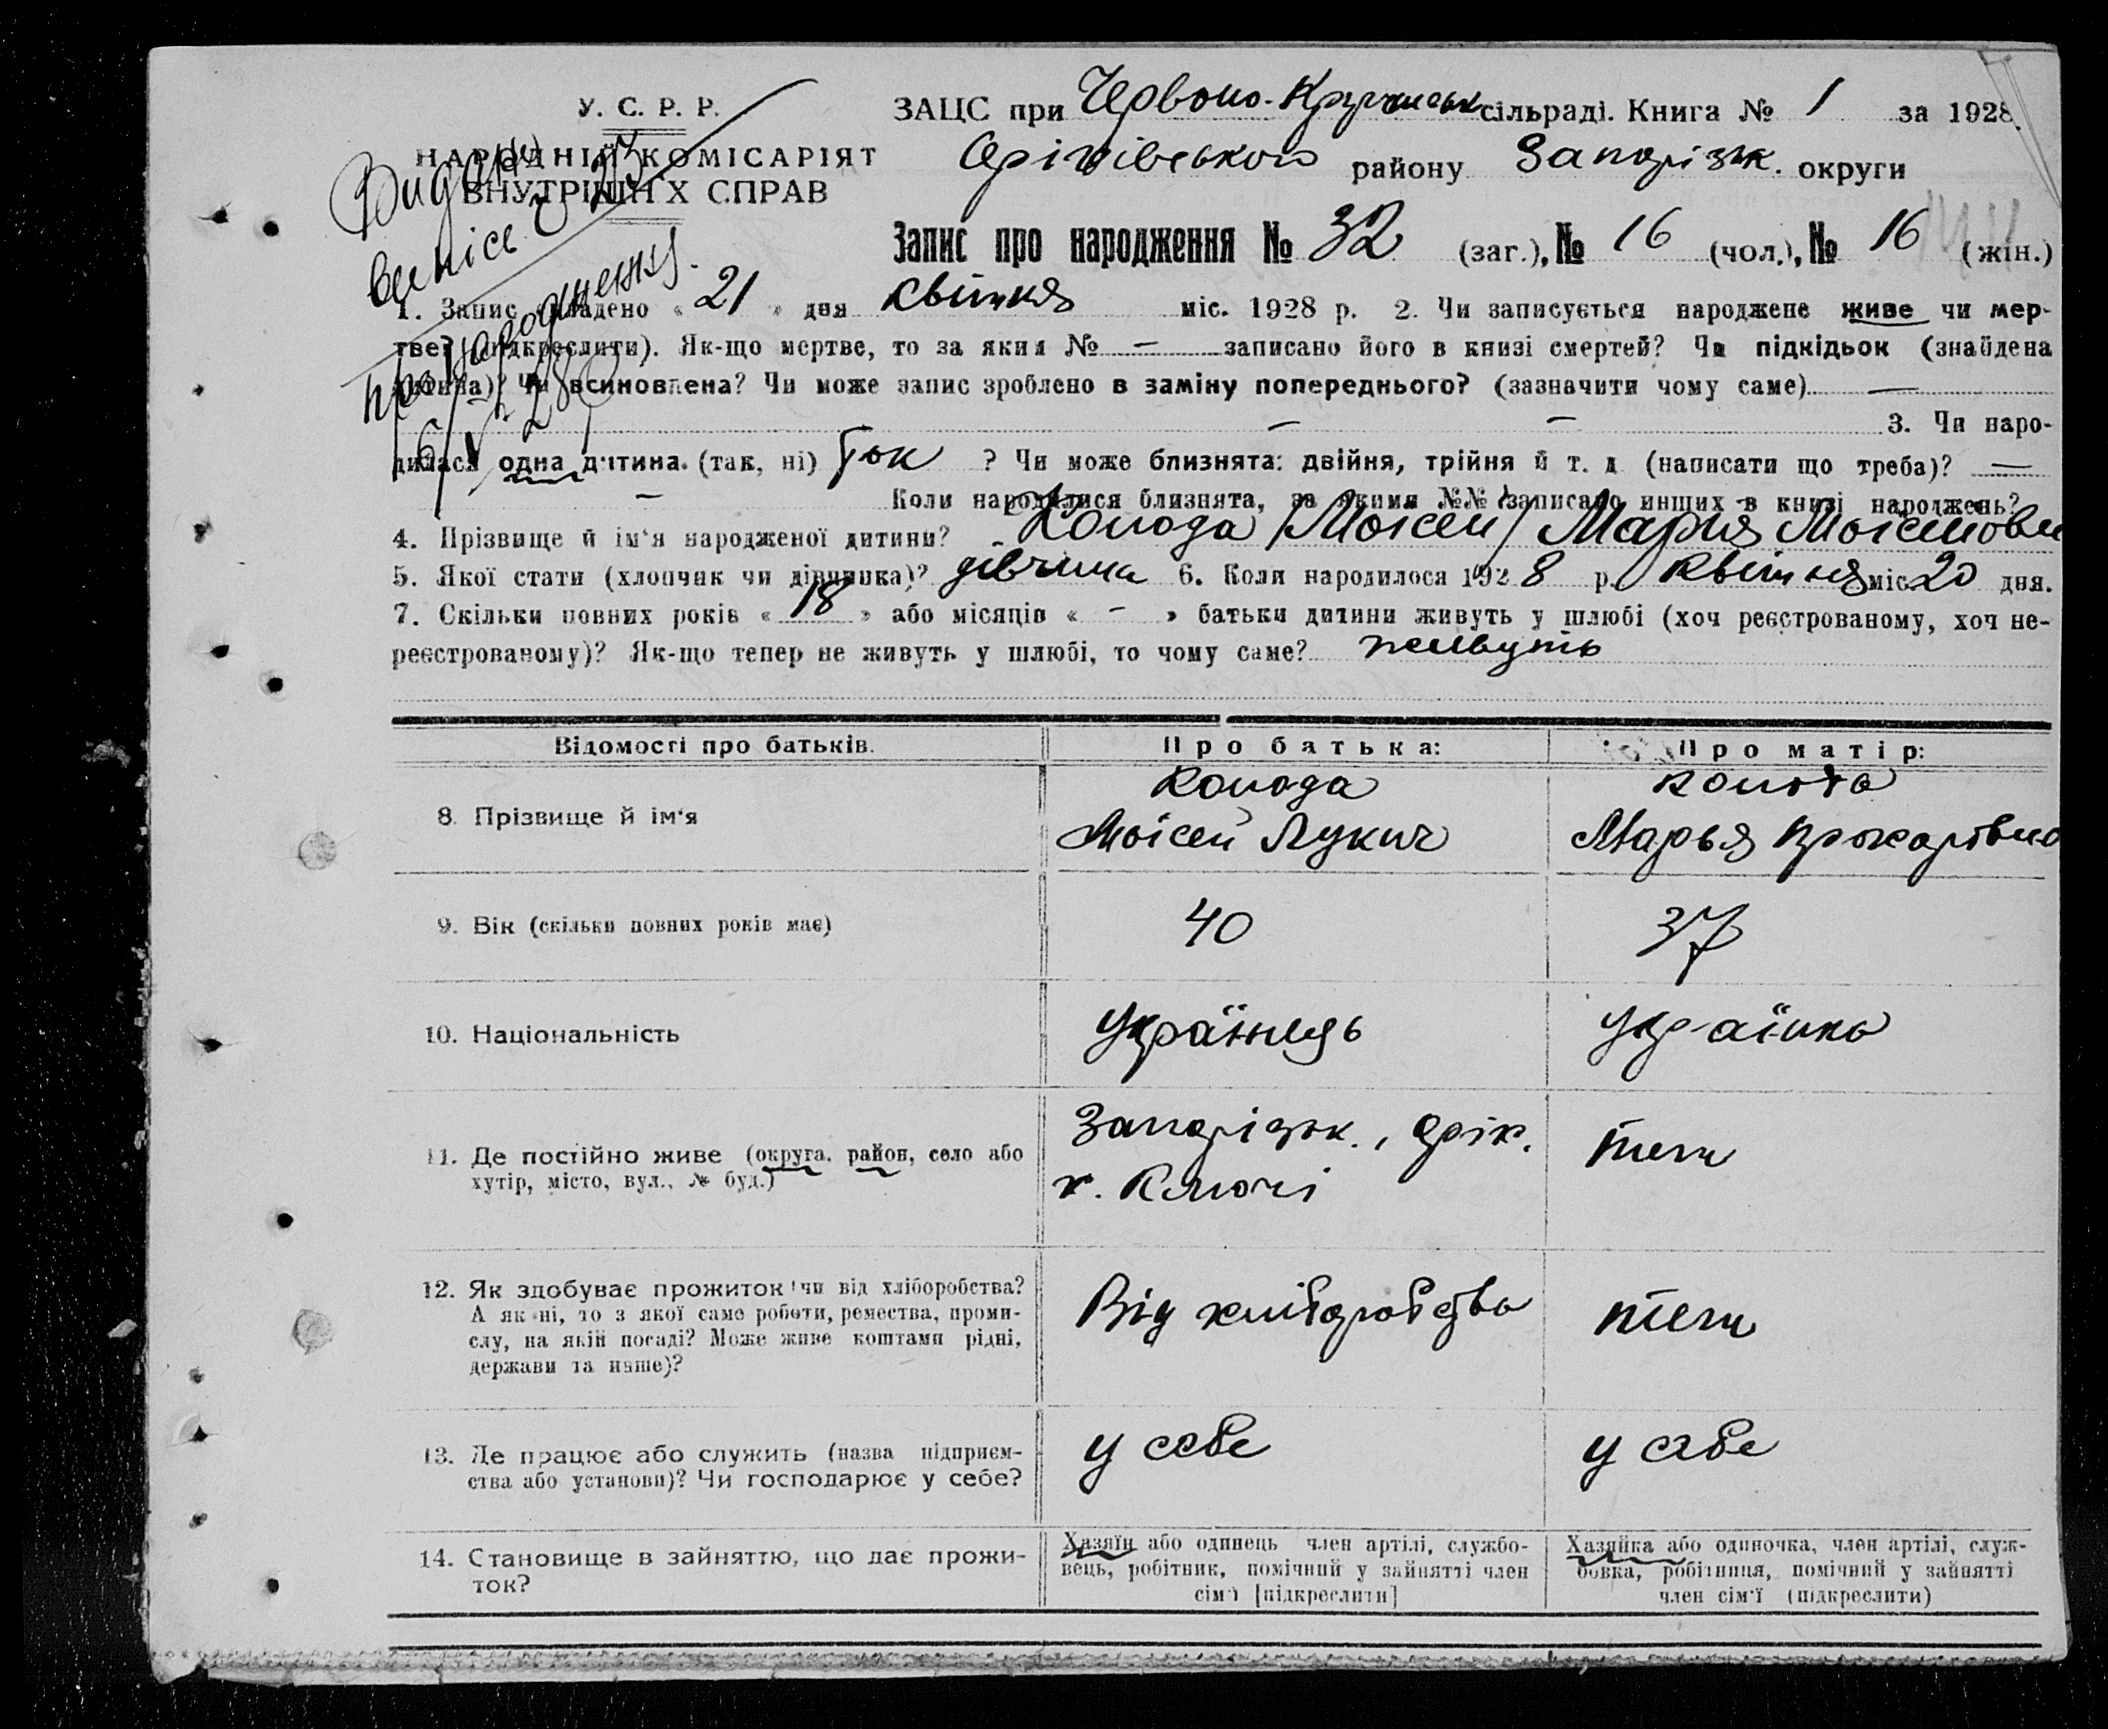 У. С. Р. Р.
НАРОДНІЙ КОМІСАРІЯТ
ВНУТРІШНІХ СПРАВ
Видано
про народження.
ЗАЦС при Червоно- сільраді. Книга № 1 за 1928.
Оріхівського району Запоріжк. округи
Запис про народження № 32 (заг.), № 16 (чол.), № 16 (жін.)
1. Запис складено « 21 » дня квітня міс. 1928 р. 2. Чи записується народжене живе чи мер-
тве? (підкреслити). Як-що мертве, то за яким № — записано його в книзі смертей? Чи підкідьок (знайдена
дитина)? Чи всиновлена? Чи може запис зроблено в заміну попереднього? (зазначити чому саме) —
— — 3. Чи наро-
дилася одна дитина. (так, ні) Так ? Чи може близнята: двійня, трійня й т. д (написати що треба)? —
— Коли народилися близнята, за якими №№ записано инших в книзі народжень? —
4. Прізвище й ім'я народженої дитини? Колода /Моісей/ Мария Моісеіовн
5. Якої стати (хлопчик чи дівчинка)? дівчина 6. Коли народилося 1928 р. Квітня міс. 20 дня.
7. Скільки повних років « 18 » або місяців « - » батьки дитини живуть у шлюбі (хоч реєстрованому, хоч не-
реєстрованому)? Як-що тепер не живуть у шлюбі, то чому саме? живуть
Відомості про батьків. Про батька: Про матір:
Колода Колода
8. Прізвище й ім'я Моісей Лукич Марья Прохорівна
9. Вік (скільки повних років має) 40 37
10. Національність Українець Українка
11. Де постійно живе (округа, район, село або
хутір, місто, вул., № буд.)
Запоріжк., Оріх.
х. Ключі
теж
12. Як здобуває прожиток (чи від хліборобства?
А як ні, то з якої саме роботи, ремества, проми-
слу, на якій посаді? Може живе коштами рідні,
держави та инше)?
Від хліборобства теж
13. Де працює або служить (назва підприєм-
ства або установи)? Чи господарює у себе?
у себе у себе
14. Становище в зайняттю, що дає прожи-
ток?
Хазяїн або одинець член артілі, службо-
вець, робітник, помічний у зайнятті член
сім'ї [підкреслити]
Хазяйка або одиночка, член артілі, служ-
бовка, робітниця, помічний у зайнятті
член сім'ї (підкреслити)